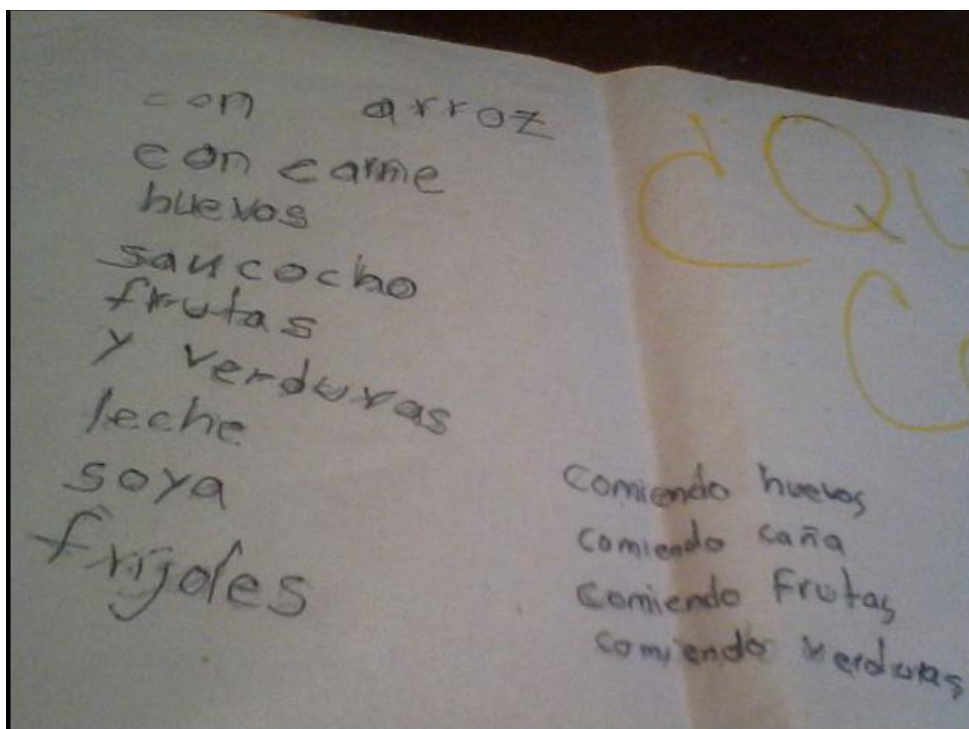 con arroz
con carne
huevos
saucocho
frutas
y verduras
leche
soya
frijoles
¿QU
C
comiendo huevos
comiendo caña
comiendo Frutas
comiendo verduras